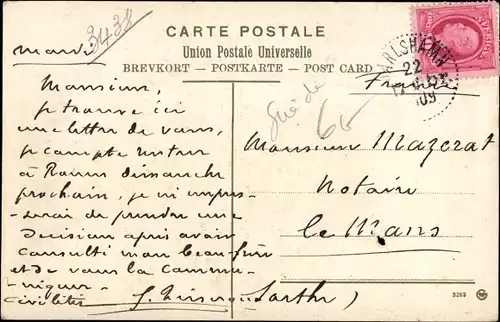 CARTE POSTALE
Union Postale Universelle
BREVKORT — POSTKARTE — POST CARD
3438
SVERIGE
KARLSHAMN
22
09
mardi
Monsieur,
je trouve ici
une lettre de vous,
je compte rentrer
à Rouen dimanche
prochain, je
de prendre une
décision après avoir
consulté mon beau frère
et de vous la commu-
-niquer
civilités
France
65
Monsieur Mazerat
Notaire
le Mans
Sarthe)
3283